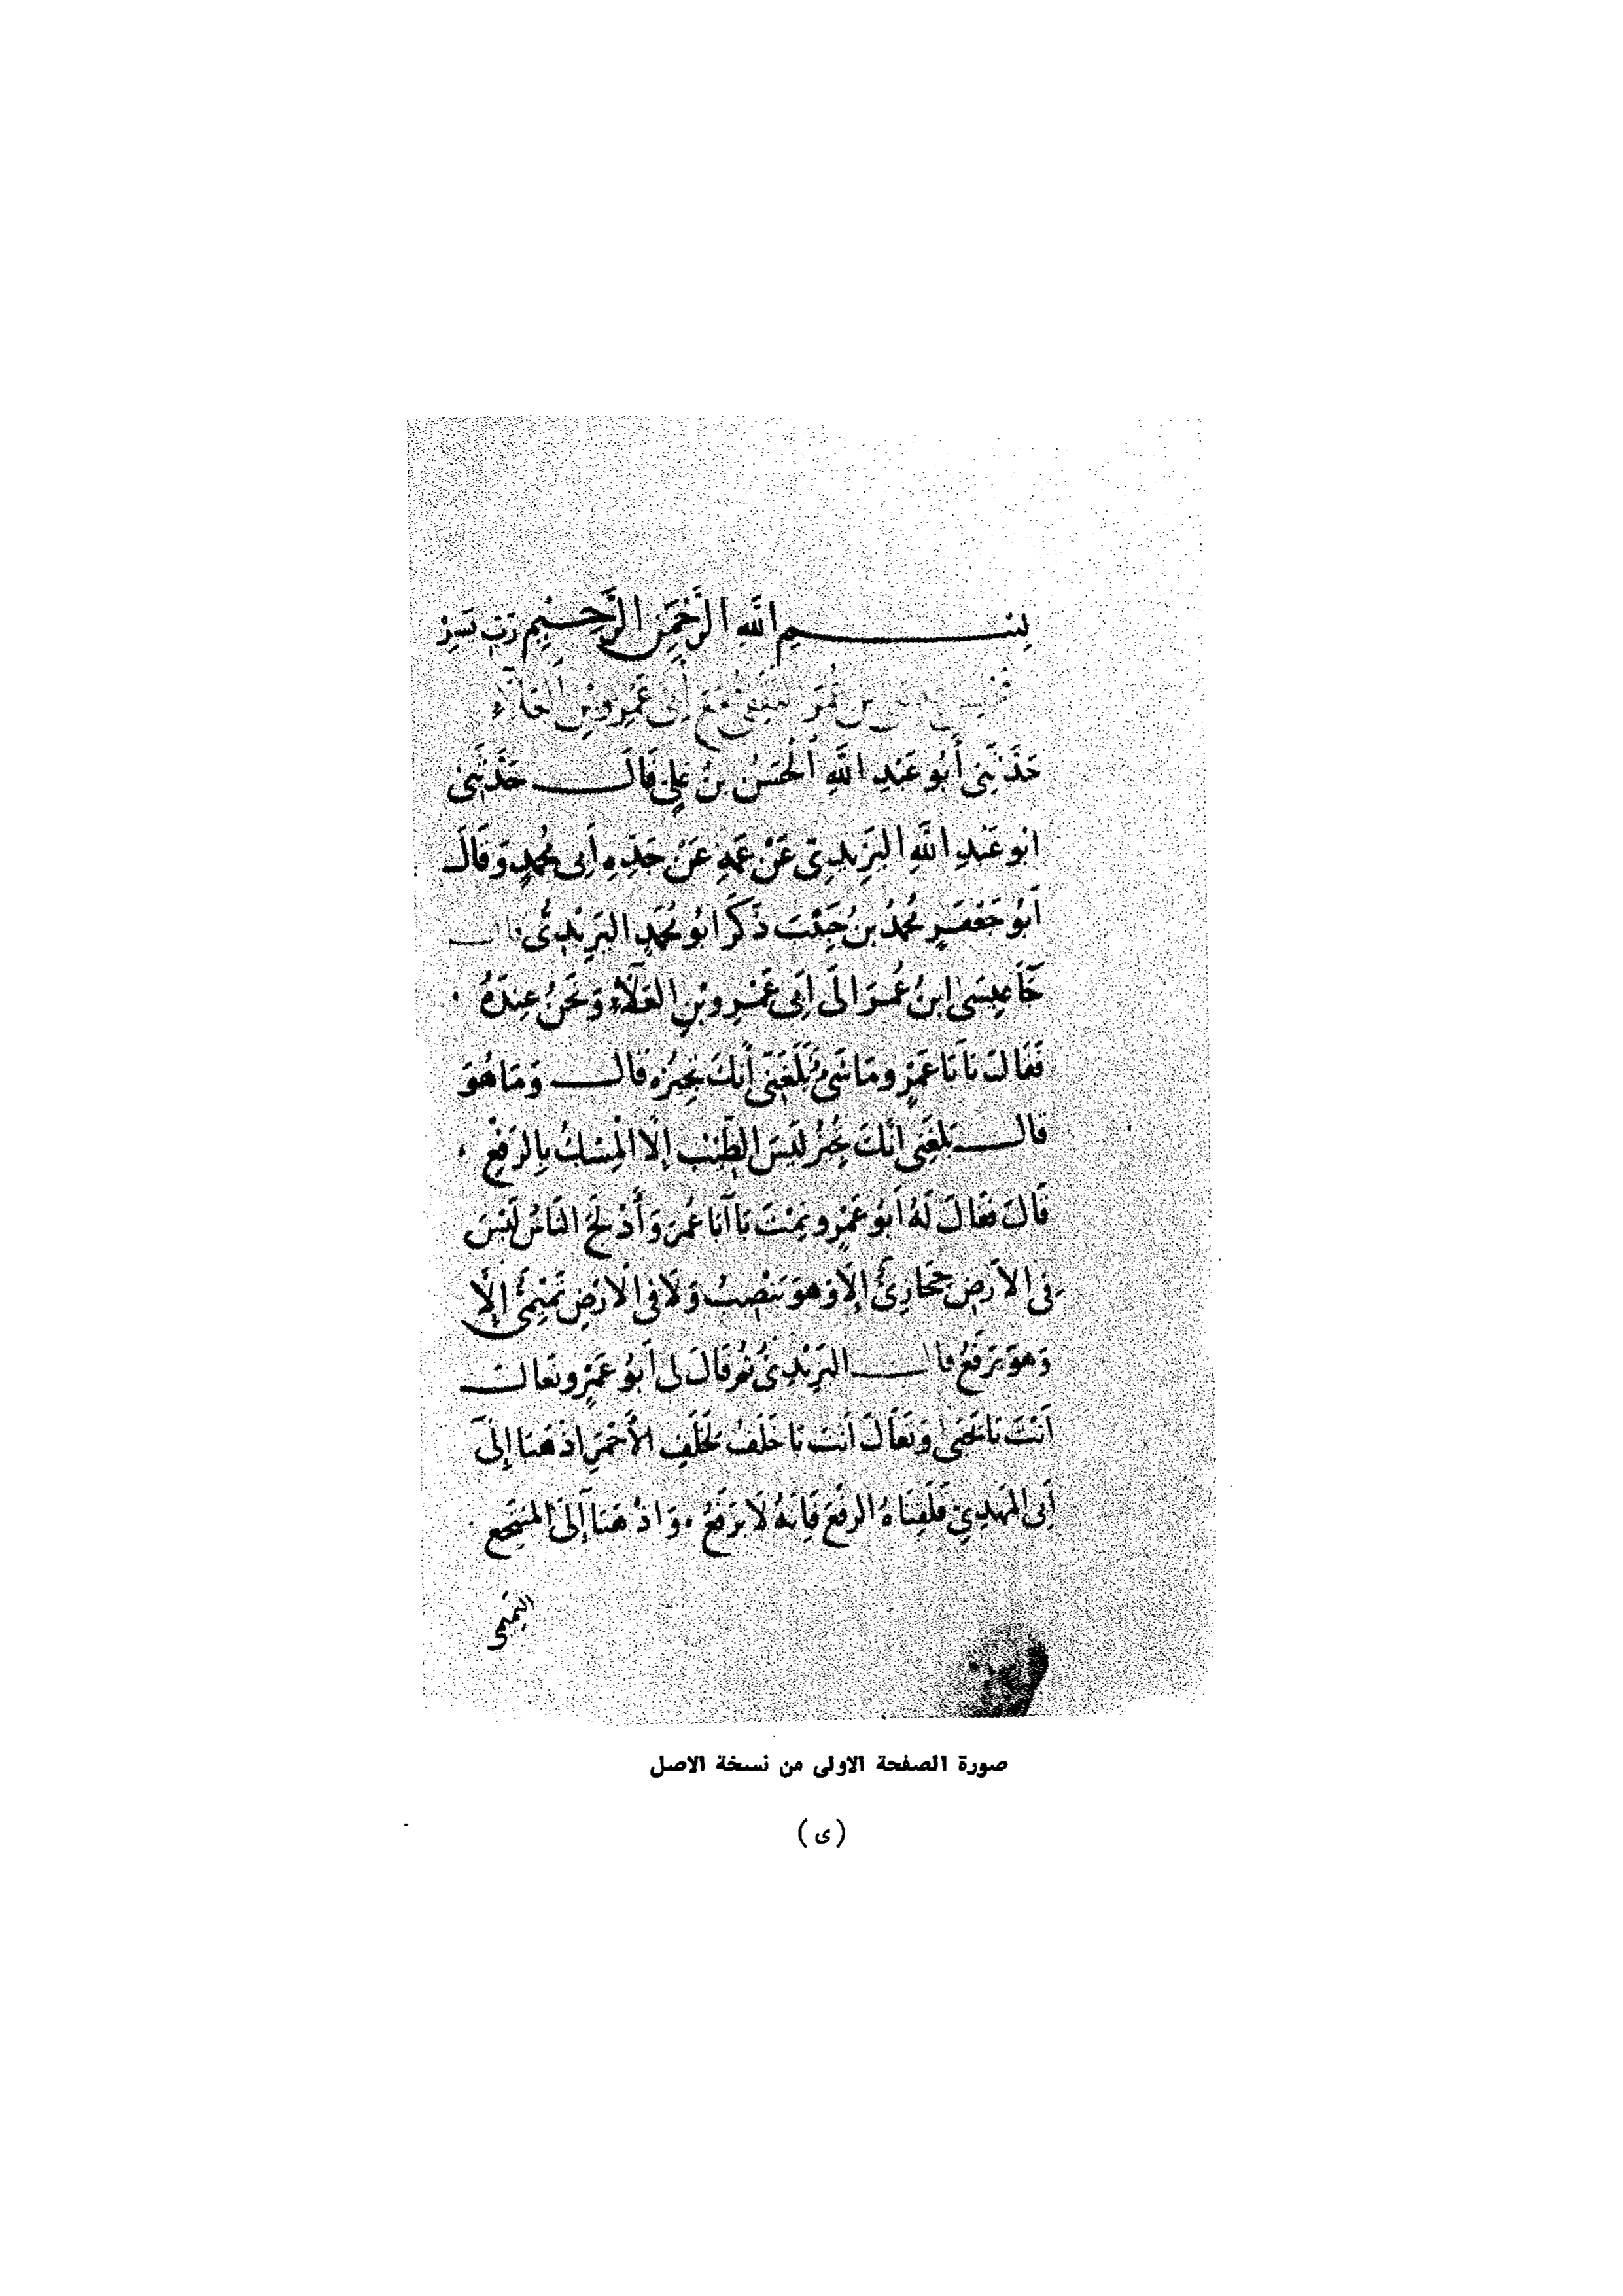 بِسْمِ اللهِ الرَّحْمَنِ الرَّحِيمِ رَبِّ يَسِّرْ
عيسى بن عُمَرَ الثقفي مَعَ أَبِي عَمْرِو بْنِ العَلَاءِ
حَدَّثَنِي أَبُو عَبْدِ اللَّهِ الْحَسَنُ بْنُ عَلِي قَالَ حَدَّثَنِي
أبو عَبْدِ اللَّهِ الْيَزِيدِيّ عَنْ عَمِّهِ عَنْ جَدِّهِ أَبِي مُحَمَّدٍ وَقَالَ
أَبُو جَعْفَرٍ مُحَمَّدُ بنُ حَبِيْبَ ذَكَرَ ابُو مُحَمَّدٍ الْيَزِيْدِىُّ قال
جَآءَ عِيسَى ابنُ عُمَرَ الَى أَبِي عَمْرِو بْنِ العَلَآءِ وَنَحْنُ عِنْدَهُ
فَقَالَ يَا أَبَا عَمْرٍو مَا شَىْءٌ بَلَغَنِي أَنَّكَ تُجِيزُهُ قَالَ وَمَا هُوَ
قال بَلَغَنِي أَنَّكَ تُجِيزُ لَيْسَ الطِّيْبُ إِلَّا الْمِسْكُ بِالرَّفْعِ
قَالَ فَقَالَ لَهُ أَبُو عَمْرٍو نِمْتَ يَا أَبَا عُمَرَ وَأَدْلَجَ النَّاسُ لَيْسَ
فِي الأَرْضِ حِجَازِىٌّ إِلَّا وَهُوَ يَنْصِبُ وَلَا فِي الْأَرْضِ تَمِيْمِىٌّ إِلَّا
وَهُوَ يَرْفَعُ قال اليَزِيْدِىُّ ثُمَّ قَالَ لِي أَبُو عَمْرٍو تَعَالَ
أَنْتَ يَا يَحْيَى وَتَعَالَ أَنْتَ يَا خَلَفُ لِخَلَفٍ الأَحْمَرِ اذْهَبَا إِلَى
أَبِي الْمَهْدِيّ فَلَقِّنَاهُ الرَّفْعَ فَإِنَّهُ لَا يَرْفَعُ . وَاذْهَبَا إِلَى الْمُنْتَجِعِ
التميمي
صورة الصفحة الاولى من نسخة الاصل
(ى)